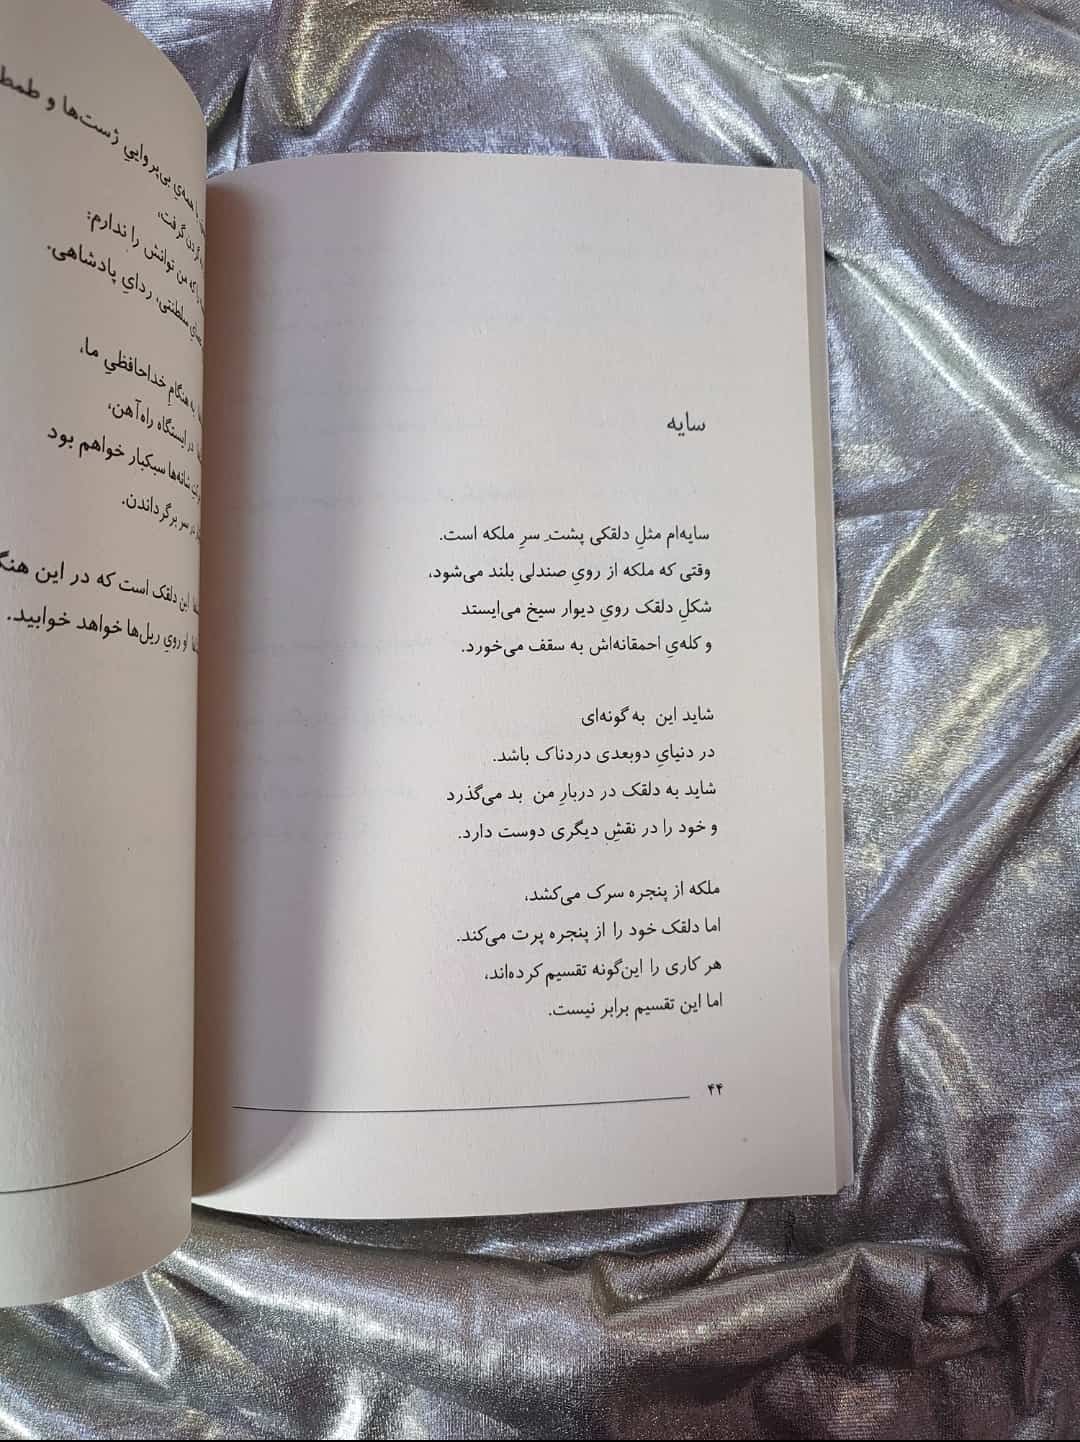 سایه
سایه‌ام مثلِ دلقکی پشت ِ سرِ ملکه است.
وقتی که ملکه از رویِ صندلی بلند می‌شود،
شکلِ دلقک رویِ دیوار سیخ می‌ایستد
و کله‌یِ احمقانه‌اش به سقف می‌خورد.
شاید این به گونه‌ای
در دنیایِ دوبعدی دردناک باشد.
شاید به دلقک در دربارِ من بد می‌گذرد
و خود را در نقشِ دیگری دوست دارد.
ملکه از پنجره سرک می‌کشد،
اما دلقک خود را از پنجره پرت می‌کند.
هر کاری را این‌گونه تقسیم کرده‌اند،
اما این تقسیم برابر نیست.
۴۴
همه‌یِ بی‌پرواییِ ژست‌ها و
گردن گرفت،
که من توانش را ندارم:
سلطنتی، ردایِ پادشاهی.
به هنگامِ خداحافظیِ ما،
در ایستگاه راه‌آهن،
شانه‌ها سبکبار خواهم بود
در سر برگرداندن.
این دلقک است که در این
او رویِ ریل‌ها خواهد خوابید.